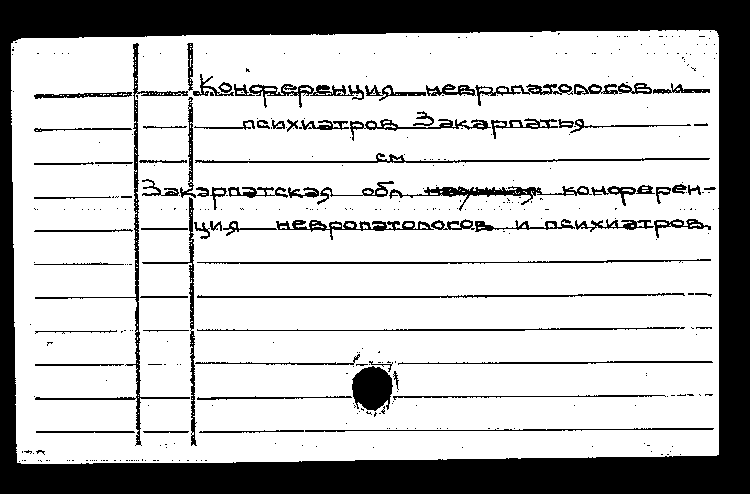 Конференция невропатологов и
психиатров Закарпатья
см
Закарпатская обл. научная конферен-
ция невропатологов и психиатров.